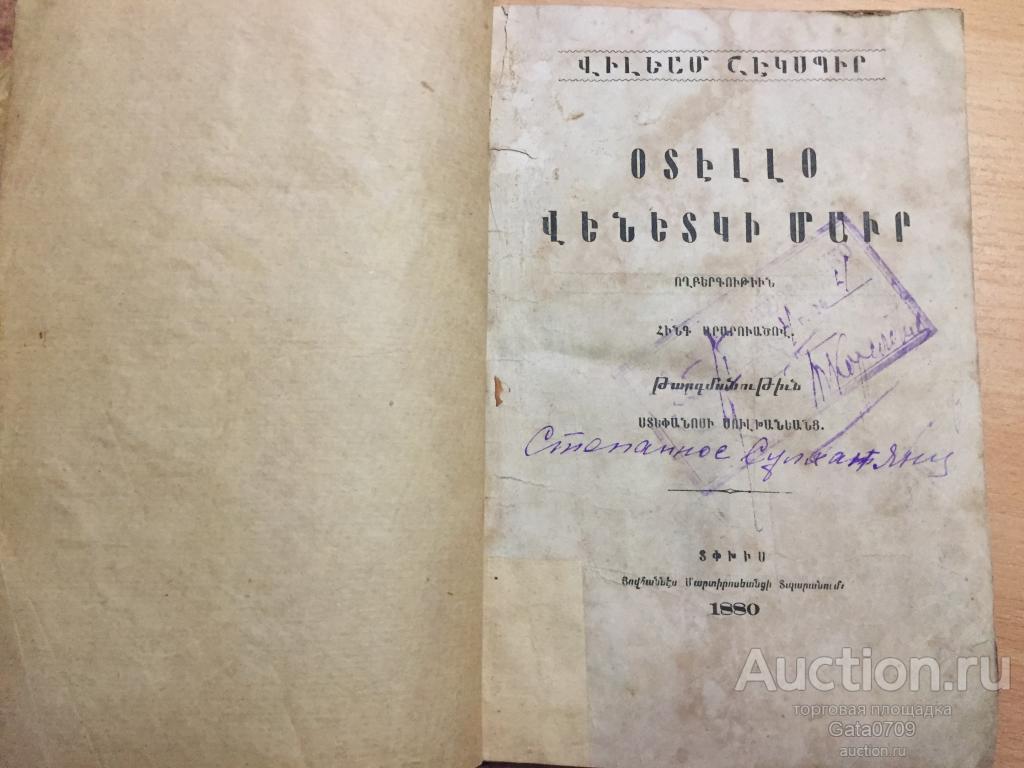 ՎԻԼԵԱՄ ՇԷԿՍՊԻՐ
ՕՏԷԼԼՕ
ՎԵՆԵՏԿԻ ՄԱՒՐ
ՈՂԲԵՐԳՈՒԹԻՒՆ
ՀԻՆԳ ԱՐԱՐՈՒԱԾՈՎ.
Թարգմանութիւն
ՍՏԵՓԱՆՈՍԻ ՍՈՒԼԽԱՆԵԱՆՑ.
Степаннос Султанянц
ՏՓԽԻՍ
Յովհաննէս Մարտիրոսեանցի Տպարանում։
1880
Auction.ru
торговая площадка
Gata0709
auction.ru